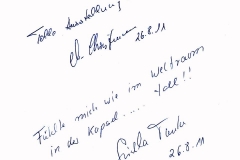 Tolle Ausstellung
26.8.11
Fühlte mich wie im Weltraum
in der Kapsel..... Toll!!
26.8.11